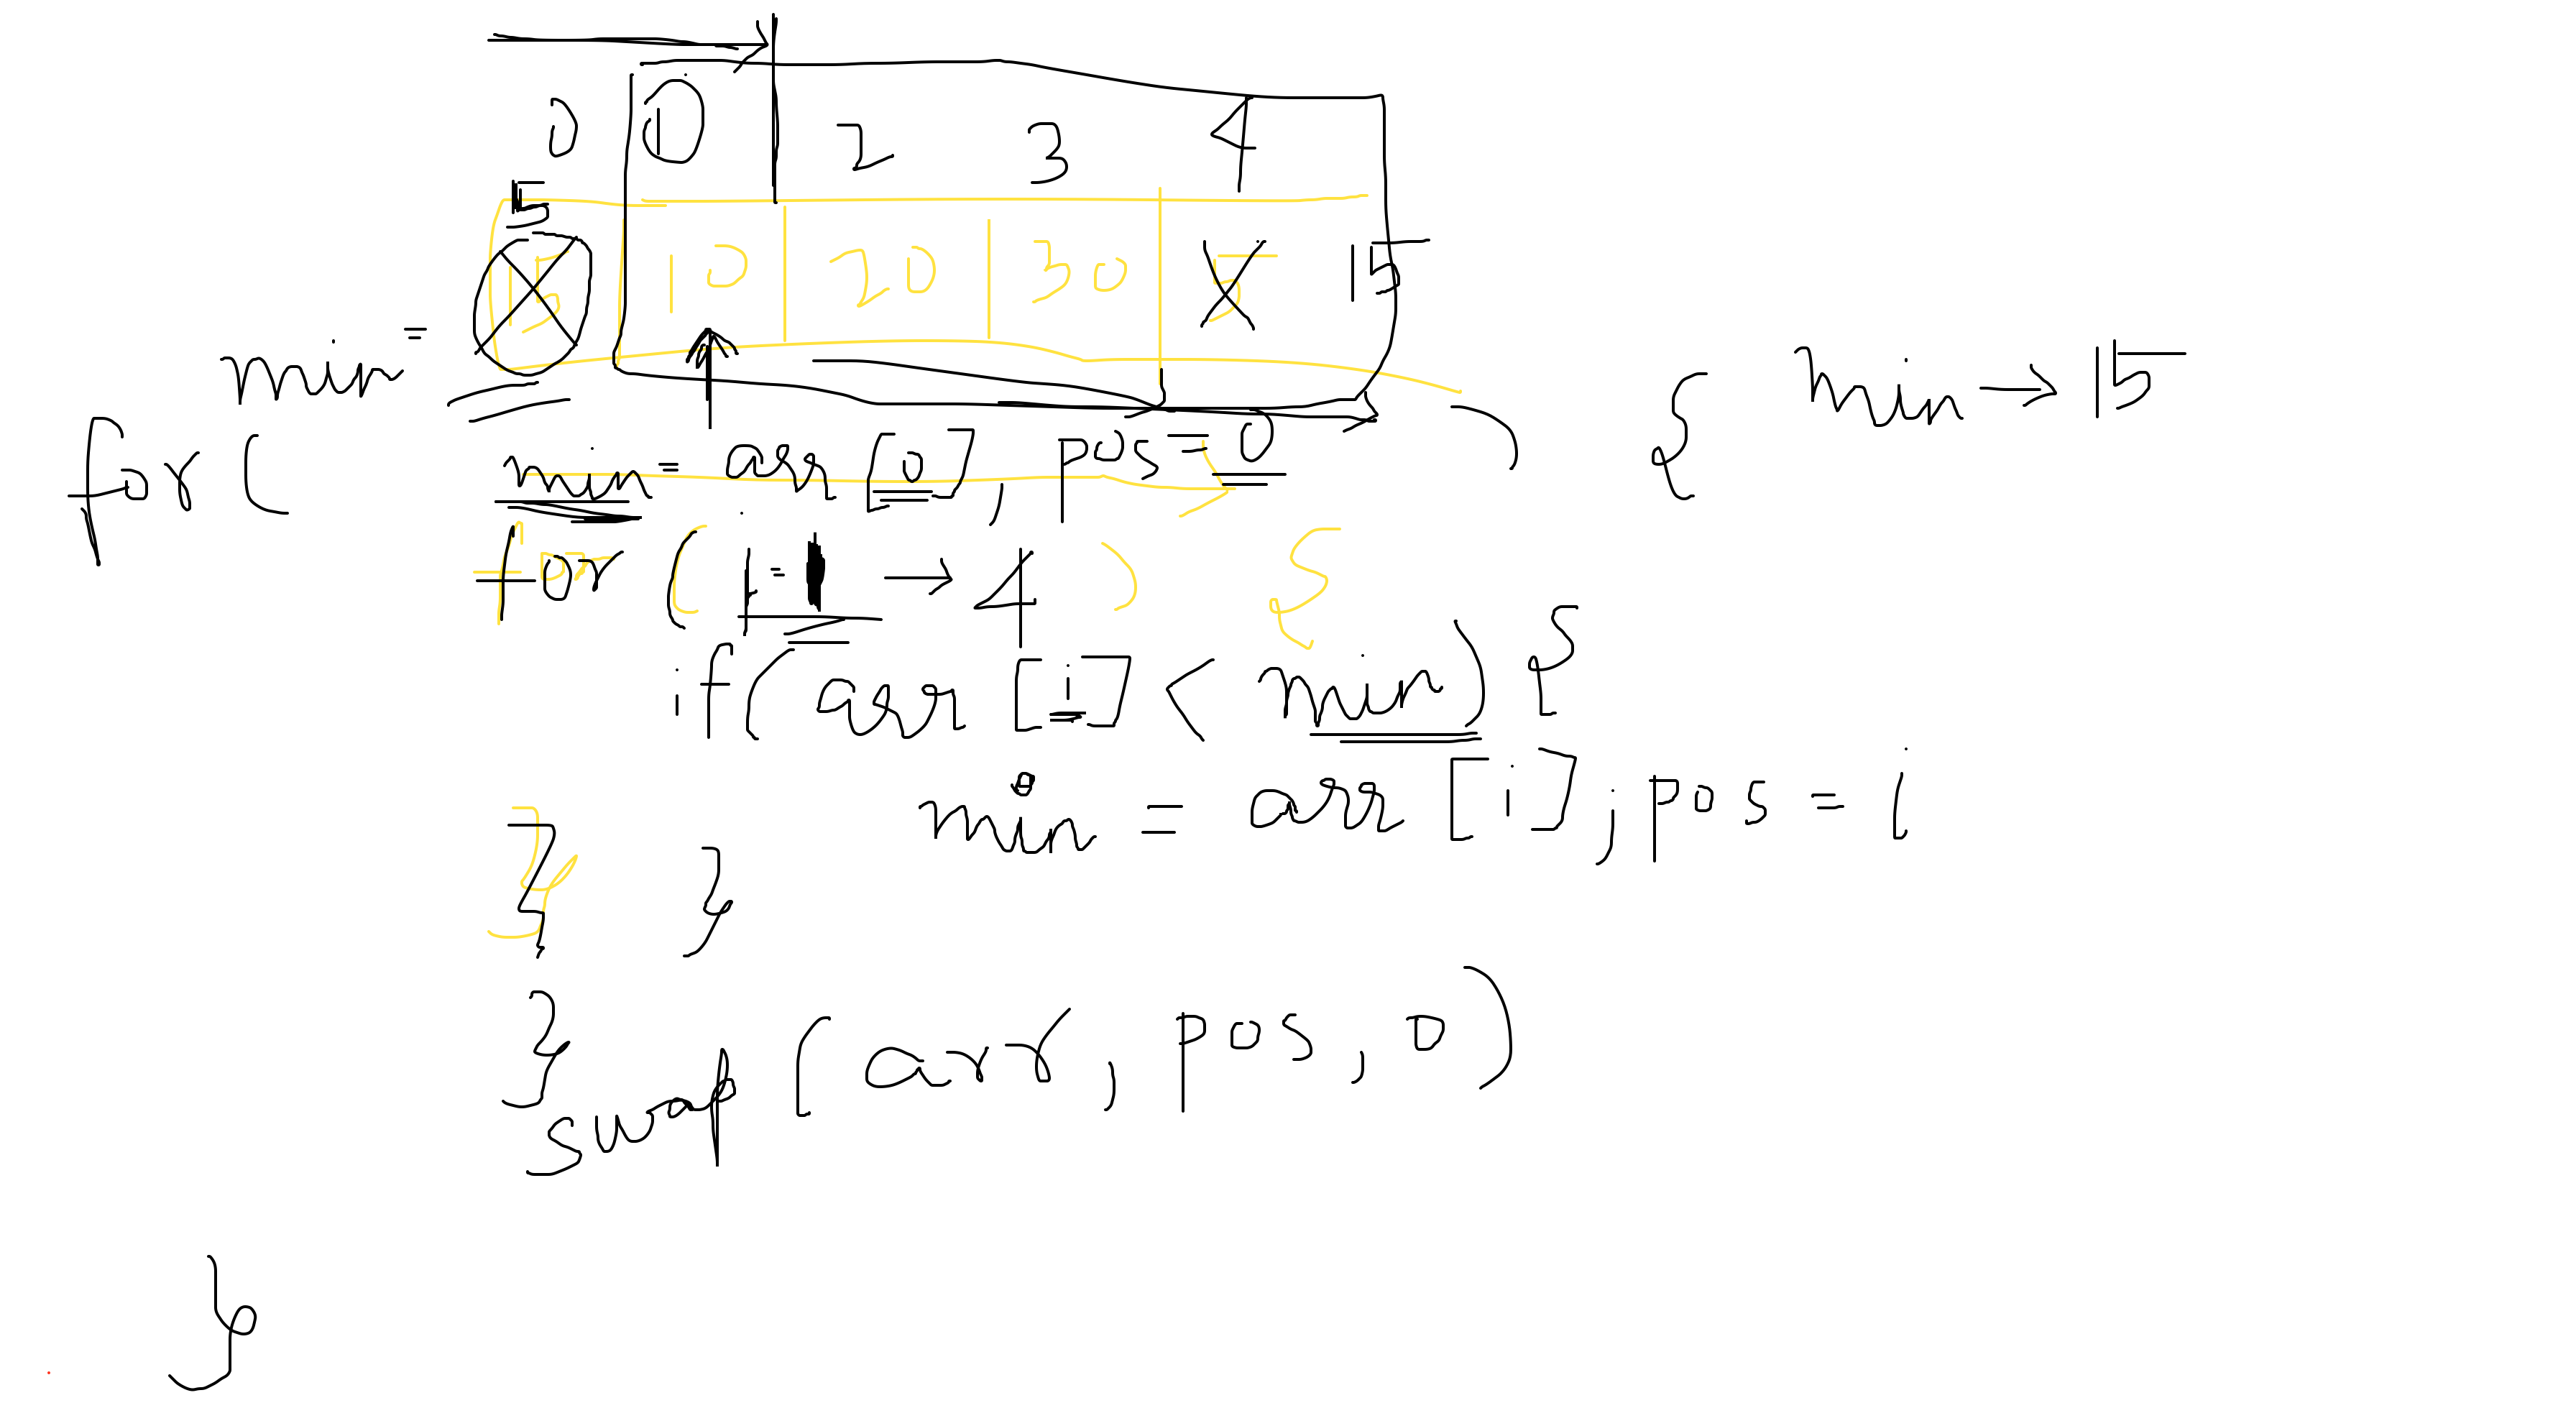 0 1 2 3 4
5
15 10 20 30 5 15
min =
min → 15
for ( ) {
min = arr [0], pos = 0
for ( i = 1 → 4 ) {
if ( arr [i] < min ) {
min = arr [i] ; pos = i
} }
}
swap ( arr , pos , 0 )
}